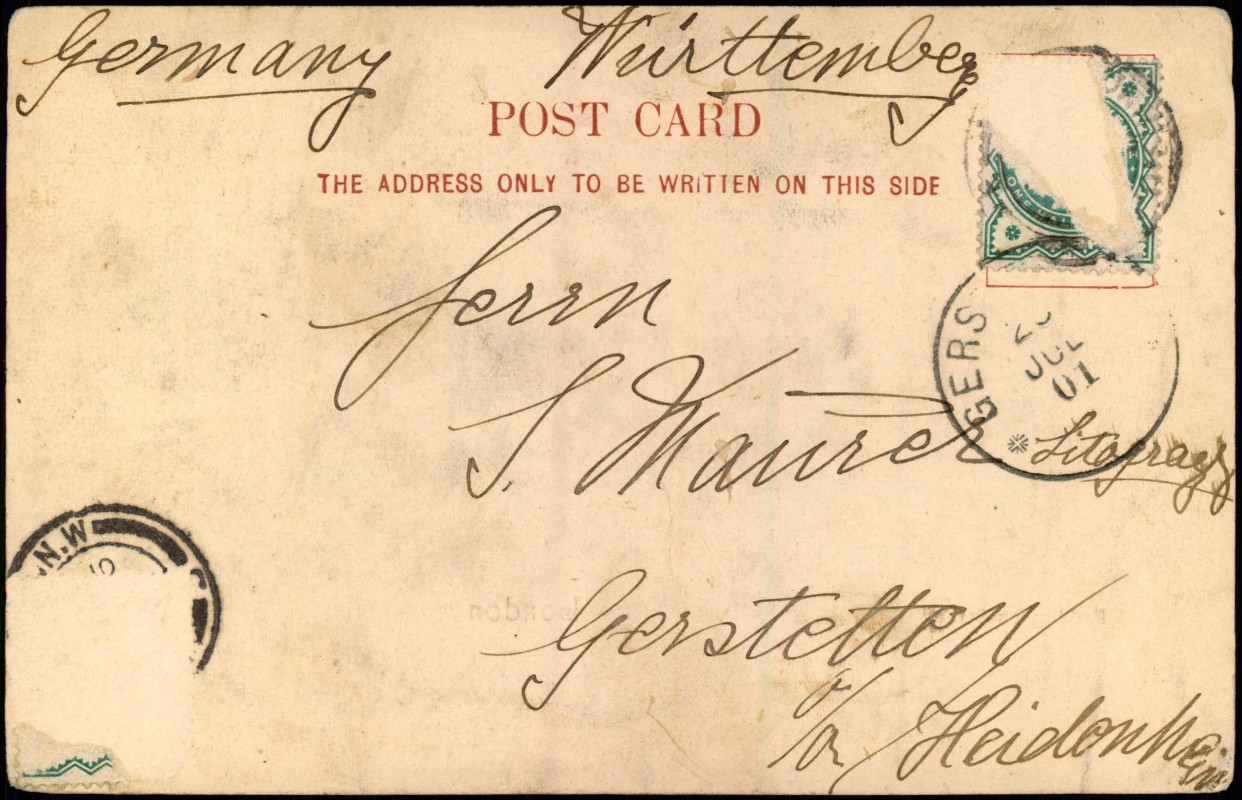 Germany Württemberg
POST CARD
THE ADDRESS ONLY TO BE WRITTEN ON THIS SIDE
Herrn
GERS
JUL
01
S. Maurer
N.W
Gerstetten
a/ Heidenheim